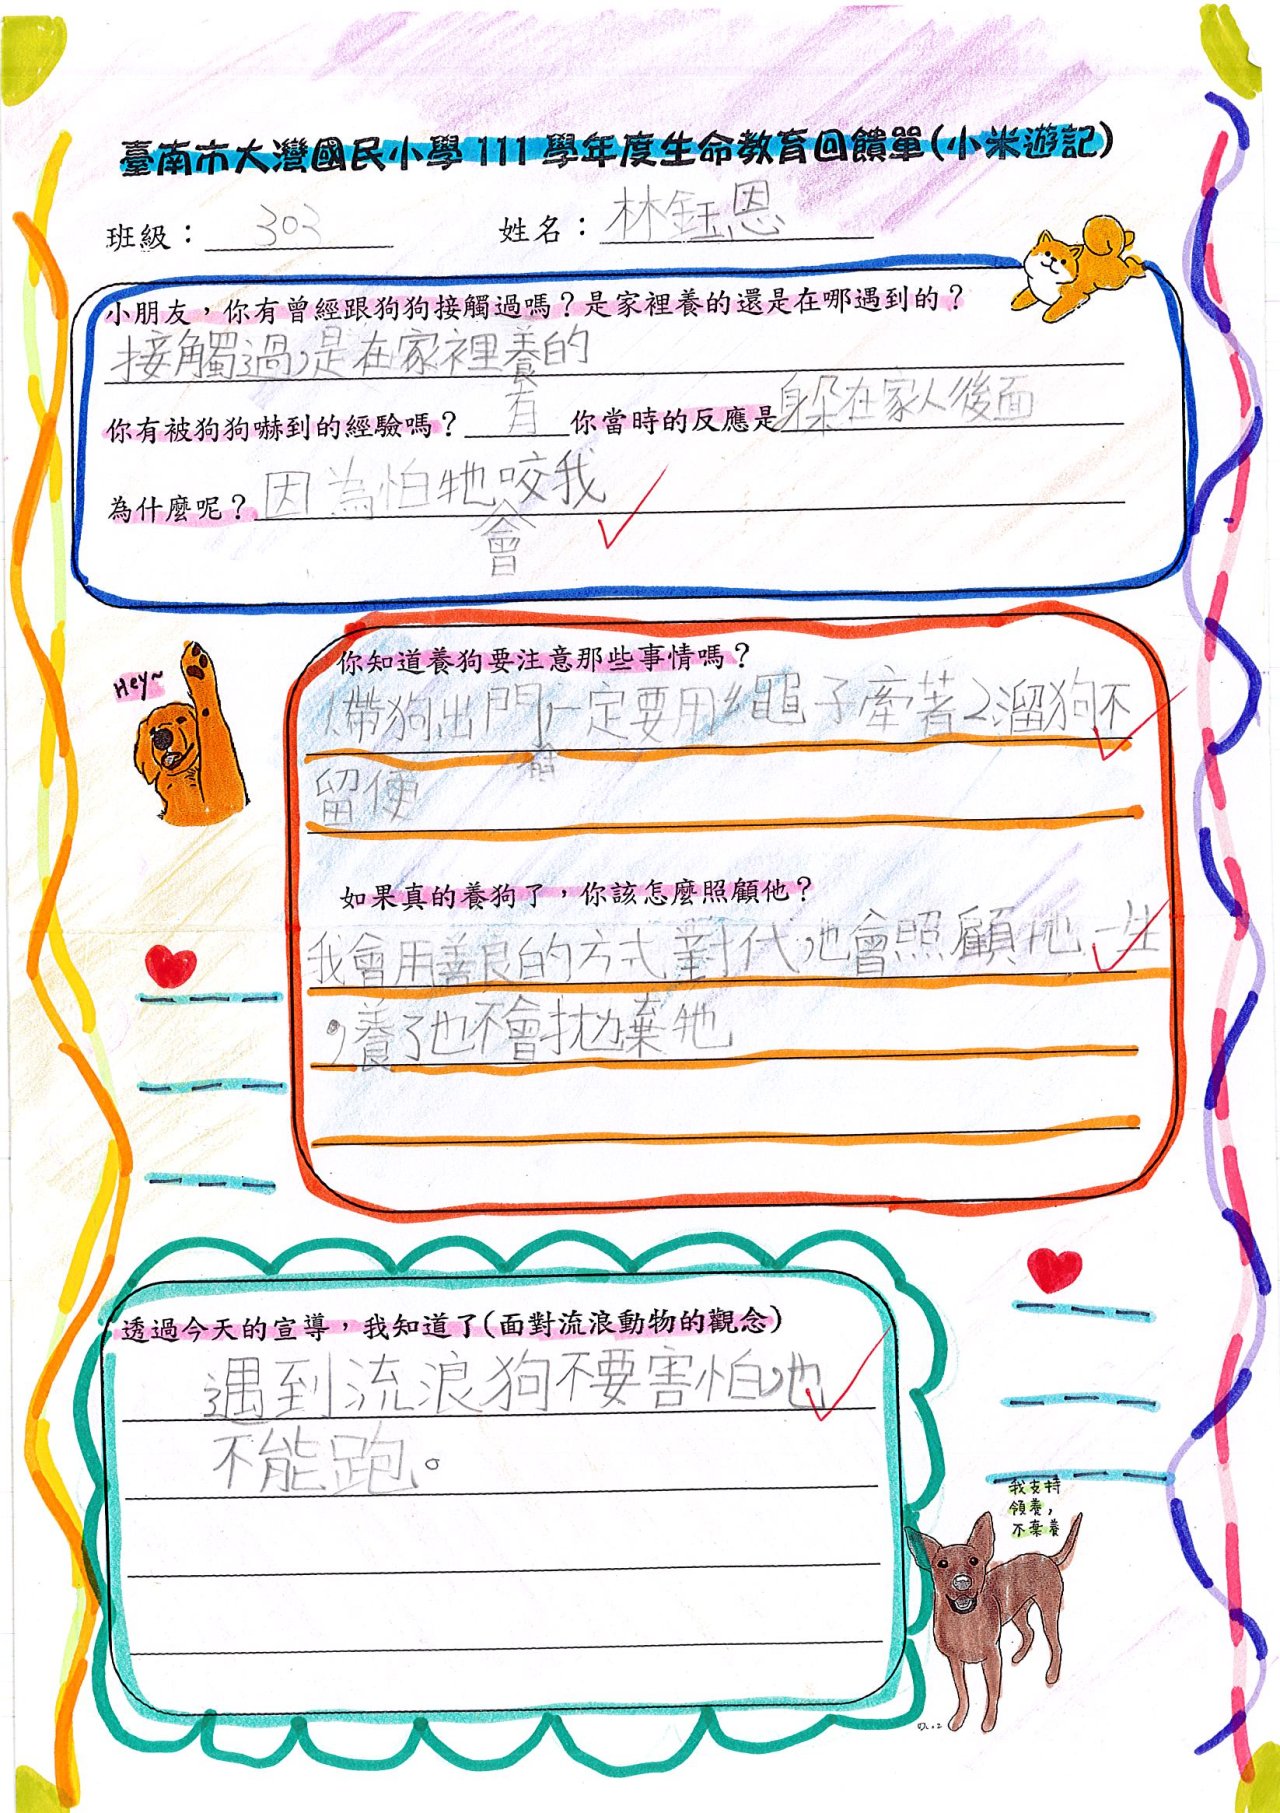 臺南市大灣國民小學 111 學年度生命教育回饋單(小米遊記)
班級：303 姓名：林鈺恩
小朋友，你有曾經跟狗狗接觸過嗎？是家裡養的還是在哪遇到的？
接觸過，是在家裡養的
你有被狗狗嚇到的經驗嗎？有 你當時的反應是躲在家人後面
為什麼呢？因為怕牠咬我
會
Hey~
你知道養狗要注意那些事情嗎？
1.帶狗出門，一定要用繩子牽著 2.溜狗不
留便
如果真的養狗了，你該怎麼照顧他？
我會用善良的方式對代，也會照顧牠一生
，養了也不會拋棄牠
透過今天的宣導，我知道了(面對流浪動物的觀念)
遇到流浪狗不要害怕，也
不能跑。
我支持
領養，
不棄養